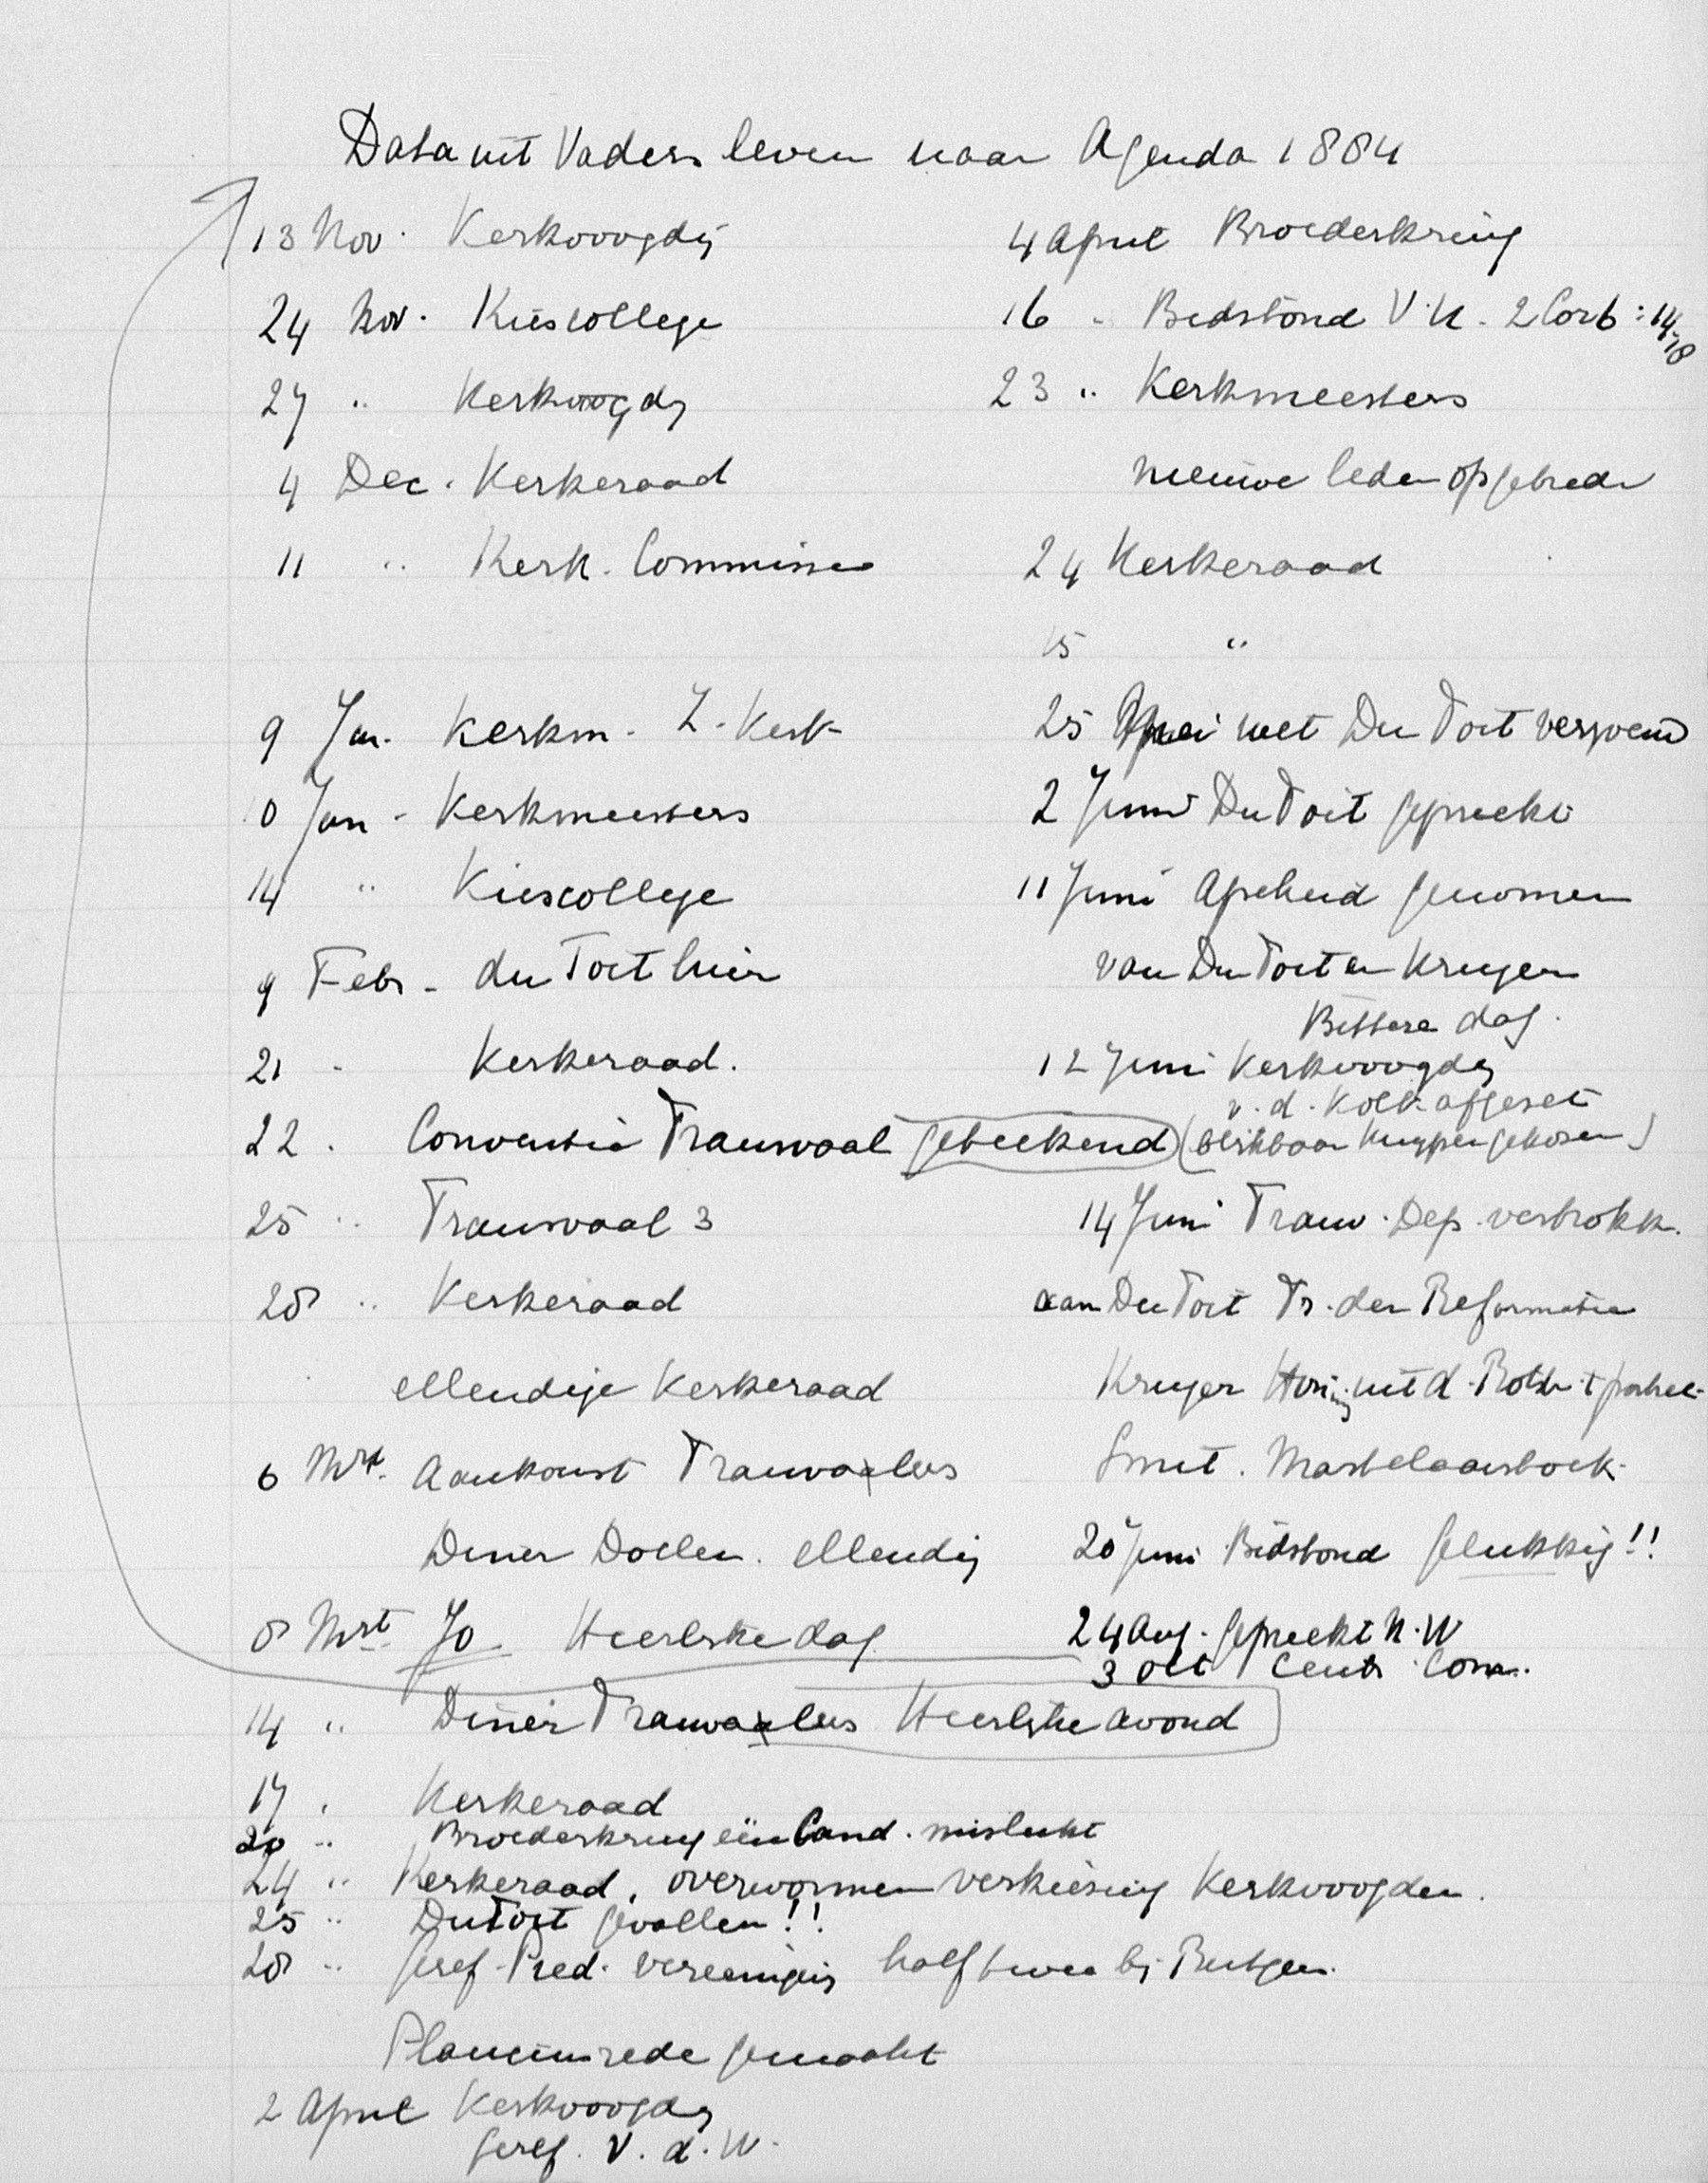 Data uit Vaders leven naar Agenda 1884
13 Nov. Kerkvoogdij
24 Nov. Kiescollege
27 " Kerkvoogdij
4 Dec. Kerkeraad
11 " Kerk. Commissie
9 Jan. Kerkm. Z. Kerk
10 Jan - Kerkmeesters
14 " Kiescollege
9 Febr - du Toit hier
21 - Kerkeraad.
22 . Conventie Transvaal geteekend
25 " Transvaal 3
28 " Kerkeraad
ellendige Kerkeraad
6 Mrt. Aankomst Transvalers
Diner Doelen. ellendig
8 Mrt Jo Heerlijke dag
14 " Diner Transvalers Heerlijke avond
17 . Kerkeraad
20 " Broederkring één Cand. mislukt
24 " Kerkeraad, overwonnen verkiezing Kerkvoogden.
25 " Du Toit gevallen!!
28 " Geref. Pred. Vereeniging half twee bij Rutgers.
Plancius rede gemaakt
2 April Kerkvoogdij
Geref. V. d. W.
4 April Broederkring
16 - Bidstond V.U. 2 Cor 6 : 14-18
23 " Kerkmeesters
nieuwe leden opgetreden
24 Kerkeraad
15 "
25 Mei met Du Toit verzoend
2 Juni Du Toit gepreekt
11 Juni Afscheid genomen
van Du Toit en Kruger
Bittere dag.
12 Juni Kerkvoogdij
v. d. Kolk afgezet
(blikbaar Kuyper gekozen)
14 Juni Transv. Dep. vertrokk.
aan Du Toit Tr. der Reformatie
Kruger Honing uit d. Rots + portret
Smit. Martelaarsboek.
20 Juni Bidstond gelukkig!!
24 Aug. gepreekt N. W
3 Oct Centr. Com.